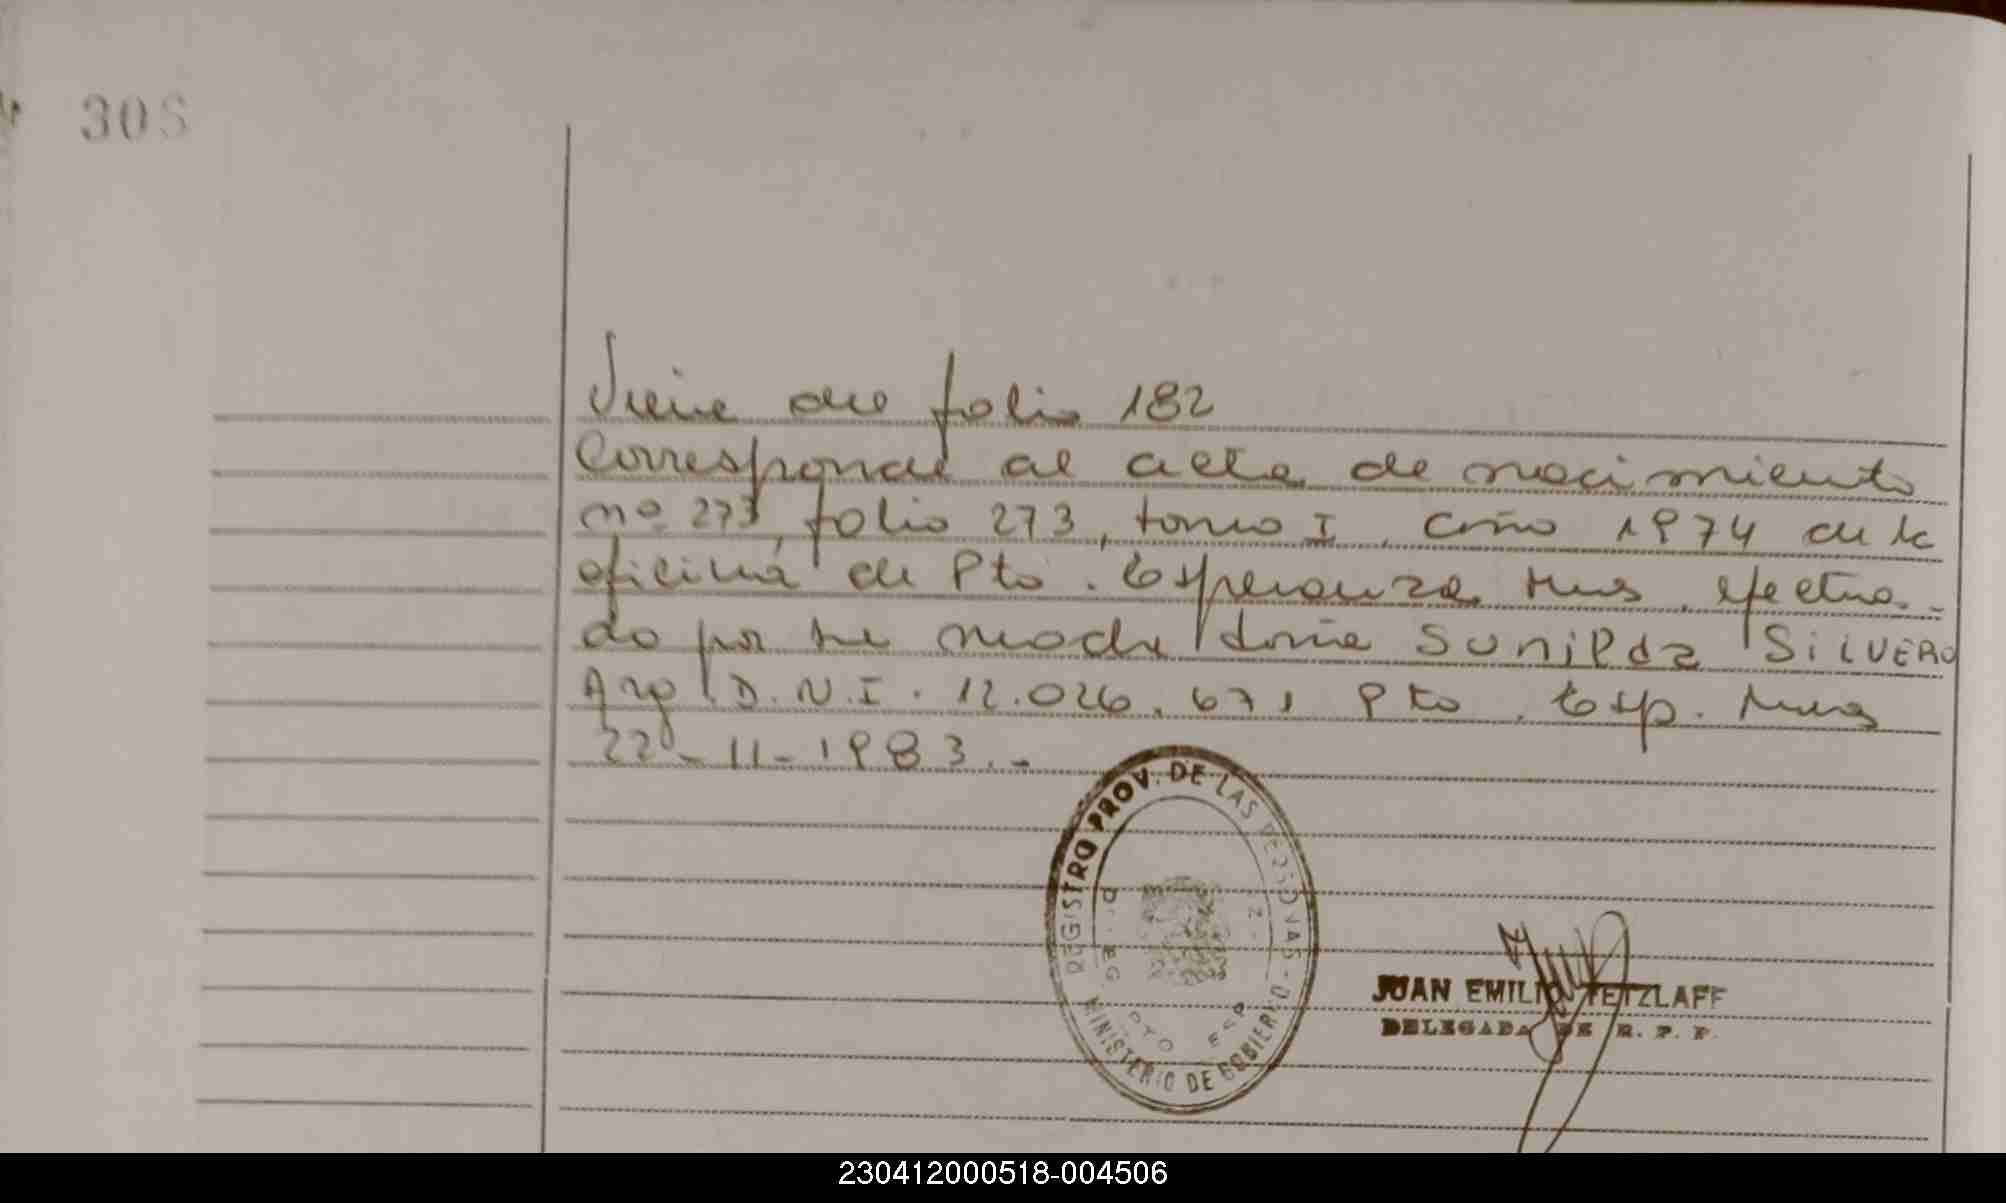 308
Viene del folio 182
Corresponde al acta de nacimiento
nº 273, folio 273, tomo I, año 1974 de la
oficina de Pto. Esperanza Mnes, efectua-
do por su madre doña SUNilda SiLVERO
Arg. D.N.I. 12.026.671 Pto. Esp. Mnes
22-11-1983.-
REGISTRO PROV. DE LAS PERSONAS
MINISTERIO DE GOBIERNO
JUAN EMILIO TETZLAFF
DELEGADA DE R. P. P.
230412000518-004506